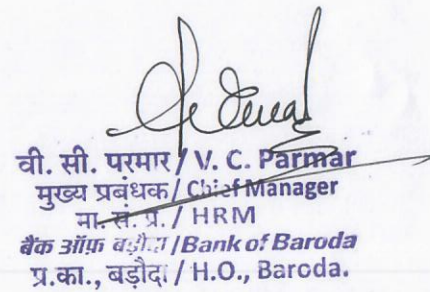 वी. सी. परमार / V. C. Parmar
मुख्य प्रबंधक / Chief Manager
मा. सं. प्र. / HRM
बैंक ऑफ़ बड़ौदा / Bank of Baroda
प्र.का., बड़ौदा / H.O., Baroda.